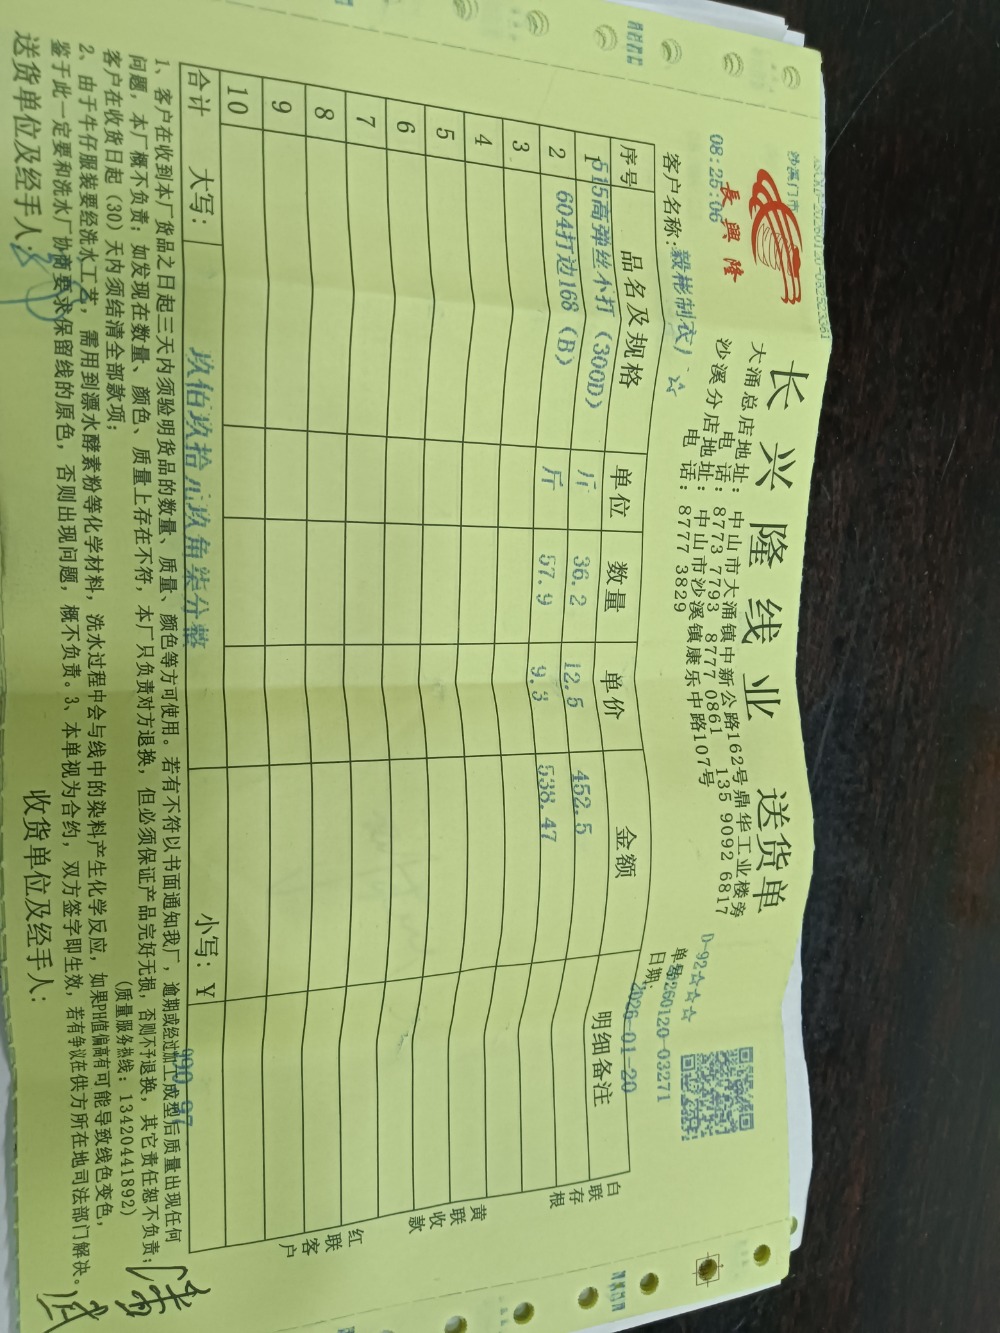 长兴隆线业 送货单
長興隆
沙溪门市
08:25:06
大涌总店地址:中山市大涌镇中新公路162号鼎华工业楼旁
电 话:8773 7793 8777 0861 135 9092 6817
沙溪分店地址:中山市沙溪镇康乐中路107号
电 话:8777 3829
D-92☆☆☆
单号:20260120-03271
日期:2026-01-20
客户名称:毅彬制衣厂 ☆
序号 品名及规格 单位 数量 单价 金额 明细备注
1 615高弹丝不打(300D) 斤 36.2 12.5 452.5
2 604打边168(B) 斤 57.9 9.3 538.47
3
4
5
6
7
8
9
10
合计 大写: 玖佰玖拾元玖角柒分整 小写:¥ 990.97
白联存根
黄联收款
红联客户
1、客户在收到本厂货品之日起三天内须验明货品的数量、质量、颜色等方可使用。若有不符以书面通知我厂,逾期或经过加工成型后质量出现任何
问题,本厂概不负责;如发现在数量、颜色、质量上存在不符,本厂只负责对方退换,但必须保证产品完好无损,否则不予退换,其它责任恕不负责;
客户在收货日起(30)天内须结清全部款项; (质量服务热线:13420441892)
2、由于牛仔服装要经洗水工艺,需用到漂水酵素粉等化学材料,洗水过程中会与线中的染料产生化学反应,如果PH值偏高有可能导致线色变色,
鉴于此一定要和洗水厂协商要求保留线的原色,否则出现问题,概不负责。3、本单视为合约,双方签字即生效,若有争议在供方所在地司法部门解决。
送货单位及经手人: 收货单位及经手人: